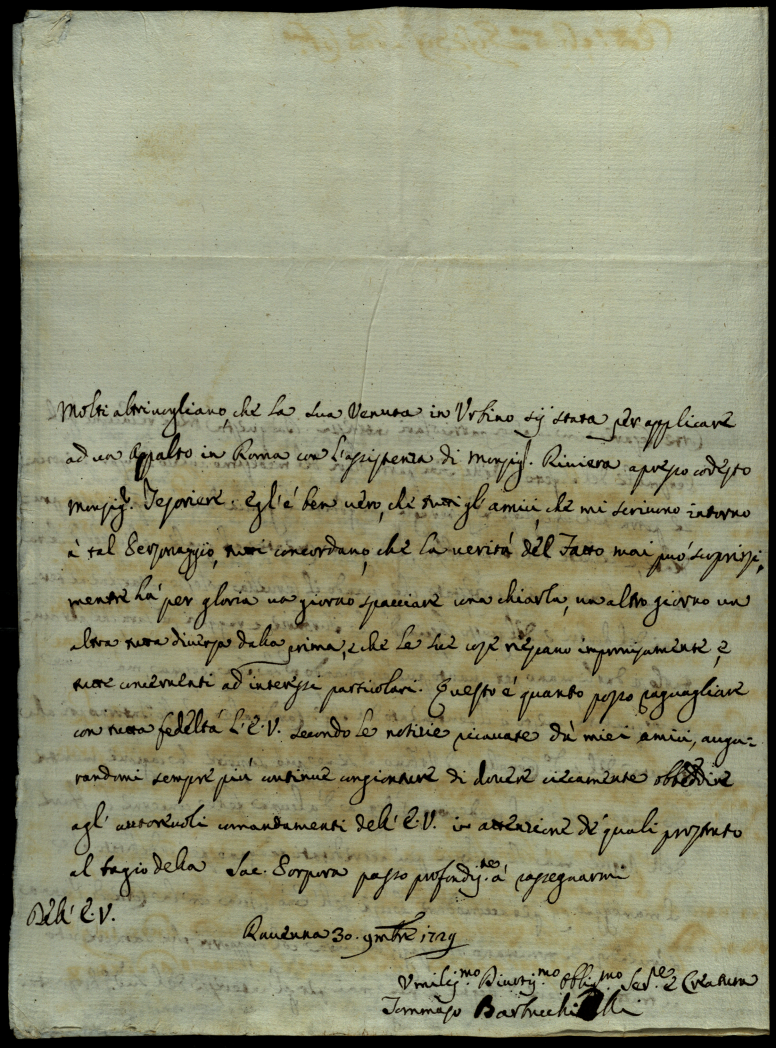 Molti altri vogliano, che la sua Venuta in Urbino sij stata per applicare
ad un Appalto in Roma con l'assistenza di Monsig.r Riviera apresso codesto
Monsig.r Tesoriere. Egl'é ben vero, che tutti gl'amici, che mi scrivono intorno
à tal Personaggio, tutti concordano, che la verità del Fatto mai può scoprirsi,
mentre hà per gloria un giorno spacciare una chiarla, un altro giorno un
altra tutta diversa dalla prima, e che le sue cose riescano improvisamente, e
tutte concernenti ad interessi particolari. Questo é quanto posso raguagliare
con tutta fedeltà l'E.V. secondo le notizie ricavate dà miei amici, augu=
randomi sempre più continue congionture di dovere ciecamente obbedire
agl'auttorevoli comandamenti dell'E.V. in attenzione de quali prostrato
al bagio della Sac. Porpora passo profondis.te à rassegnarmi
Dell'E.V.
Ravenna 30. 9mbre 1729
Umilis.mo Divotis.mo Obblig.mo Ser.re e Creatura
Tommaso